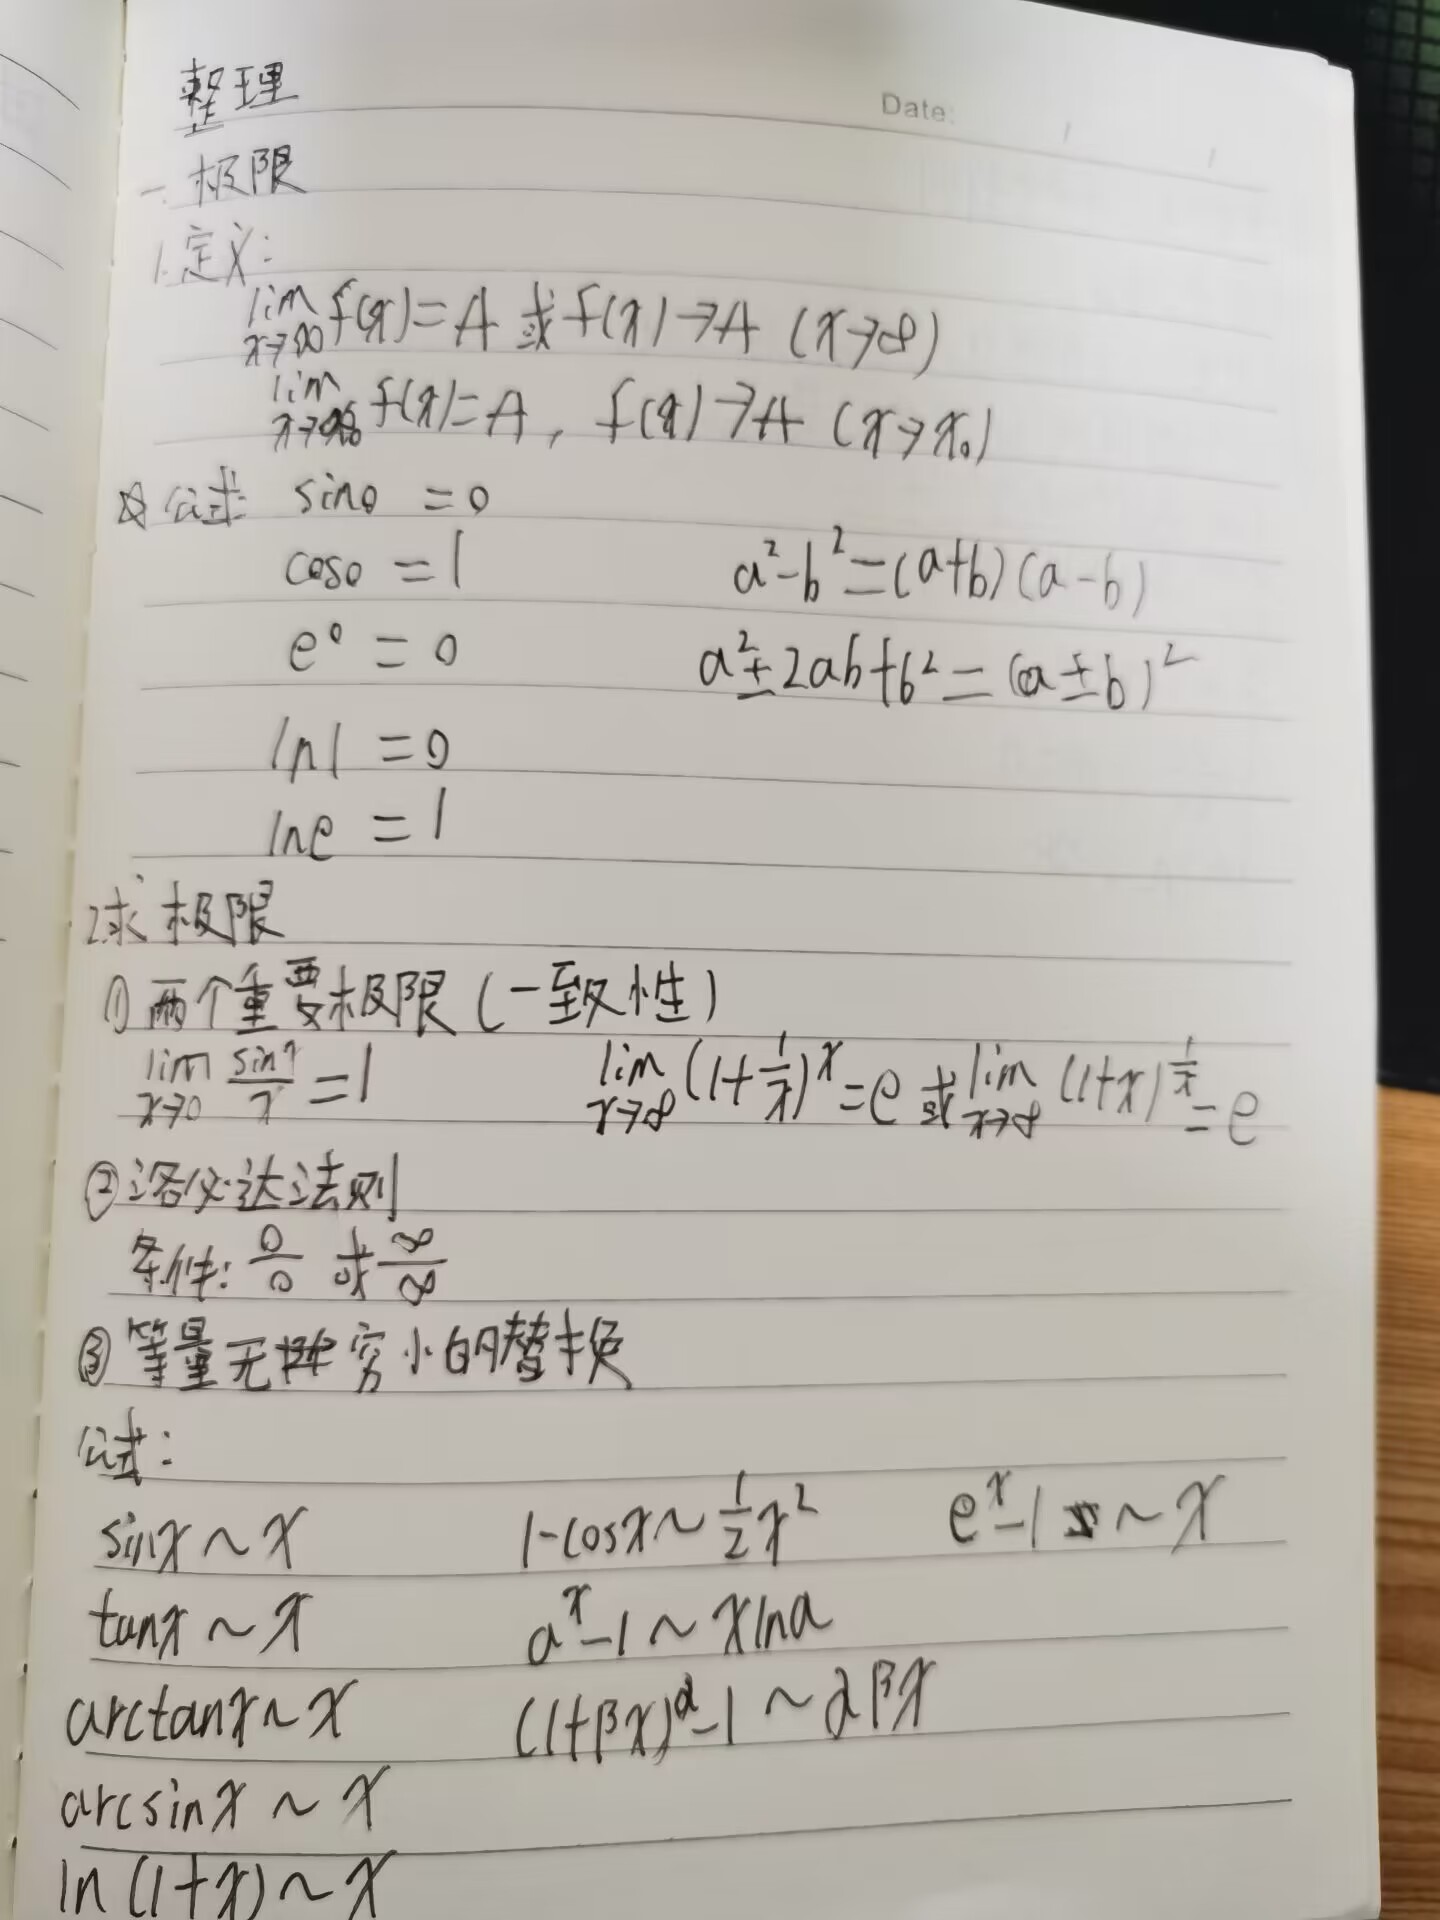 整理
Date: / /
一. 极限
1.定义:
lim x→∞ f(x)=A 或 f(x)→A (x→∞)
lim x→x₀ f(x)=A, f(x)→A (x→x₀)
☆公式: sin0 = 0
cos0 = 1 a²-b²=(a+b)(a-b)
e⁰ = 0 a²±2ab+b²=(a±b)²
ln1 = 0
lne = 1
2.求极限
①两个重要极限(一致性)
lim x→0 sinx/x = 1 lim x→∞ (1+1/x)^x = e 或 lim x→∞ (1+x)^(1/x) = e
②洛必达法则
条件: 0/0 求 ∞/∞
③等量无穷小的替换
公式:
sinx ~ x 1-cosx ~ ½x² e^x-1 ~ x
tanx ~ x a^x-1 ~ xlna
arctanx ~ x (1+βx)^α-1 ~ αβx
arcsinx ~ x
ln(1+x) ~ x